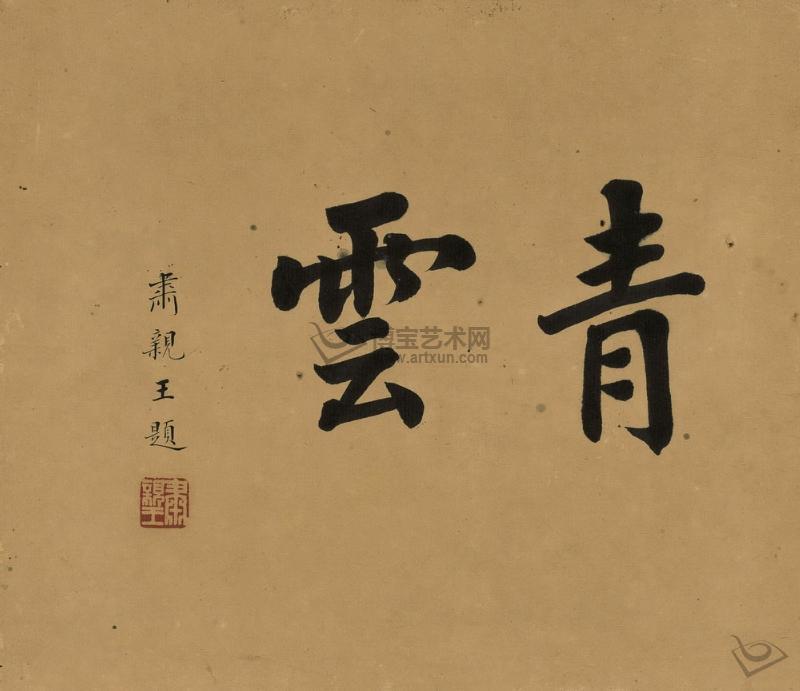 青雲
肅親王題
肅親王
博宝艺术网
www.artxun.com